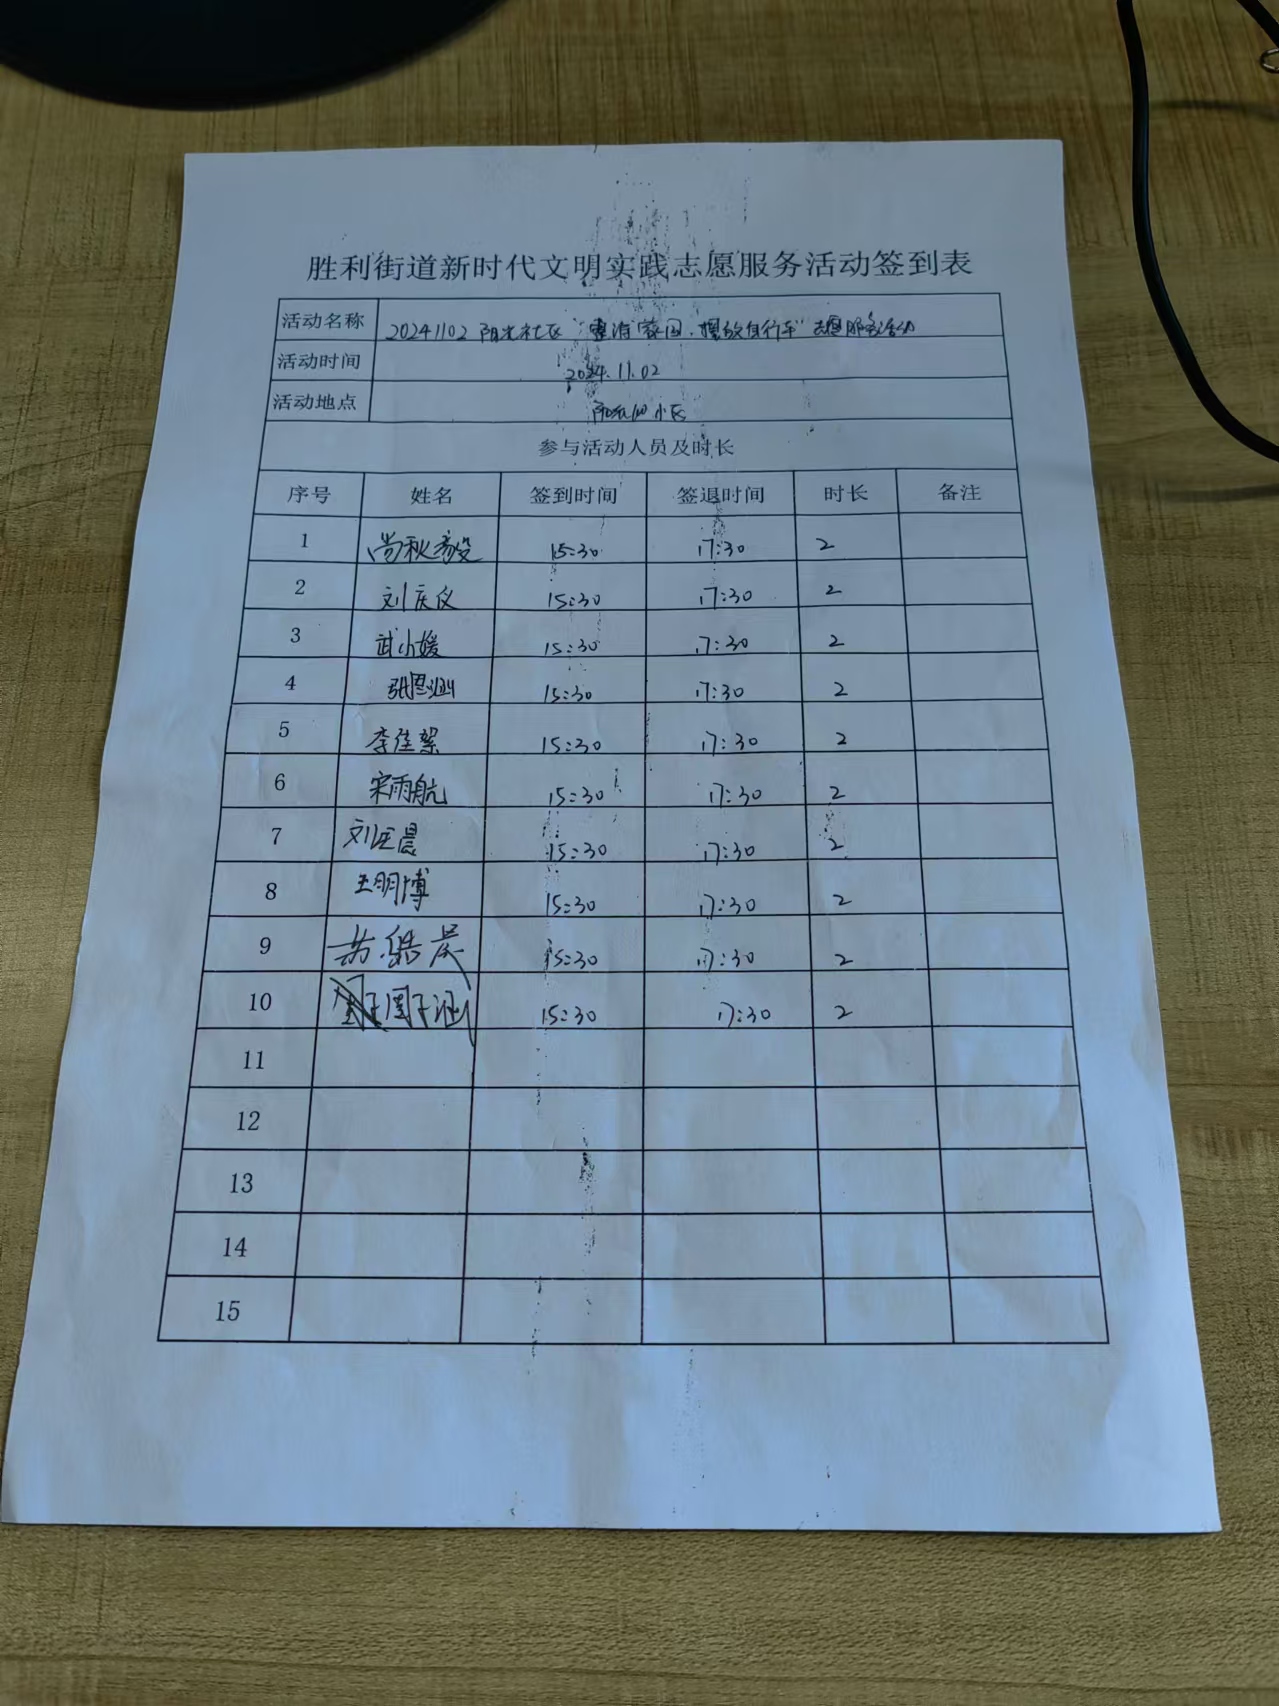 胜利街道新时代文明实践志愿服务活动签到表
活动名称 20241102 阳光社区 "清 家园·摆放自行车" 志愿服务活动
活动时间 2024.11.02
活动地点 小区
参与活动人员及时长
序号 姓名 签到时间 签退时间 时长 备注
1 尚秋 15:30 17:30 2
2 刘庆仪 15:30 17:30 2
3 武小媛 15:30 17:30 2
4 张思涵 15:30 17:30 2
5 李佳絮 15:30 17:30 2
6 宋雨航 15:30 17:30 2
7 刘 晨 15:30 17:30 2
8 王明博 15:30 17:30 2
9 15:30 17:30 2
10 周子涵 15:30 17:30 2
11
12
13
14
15